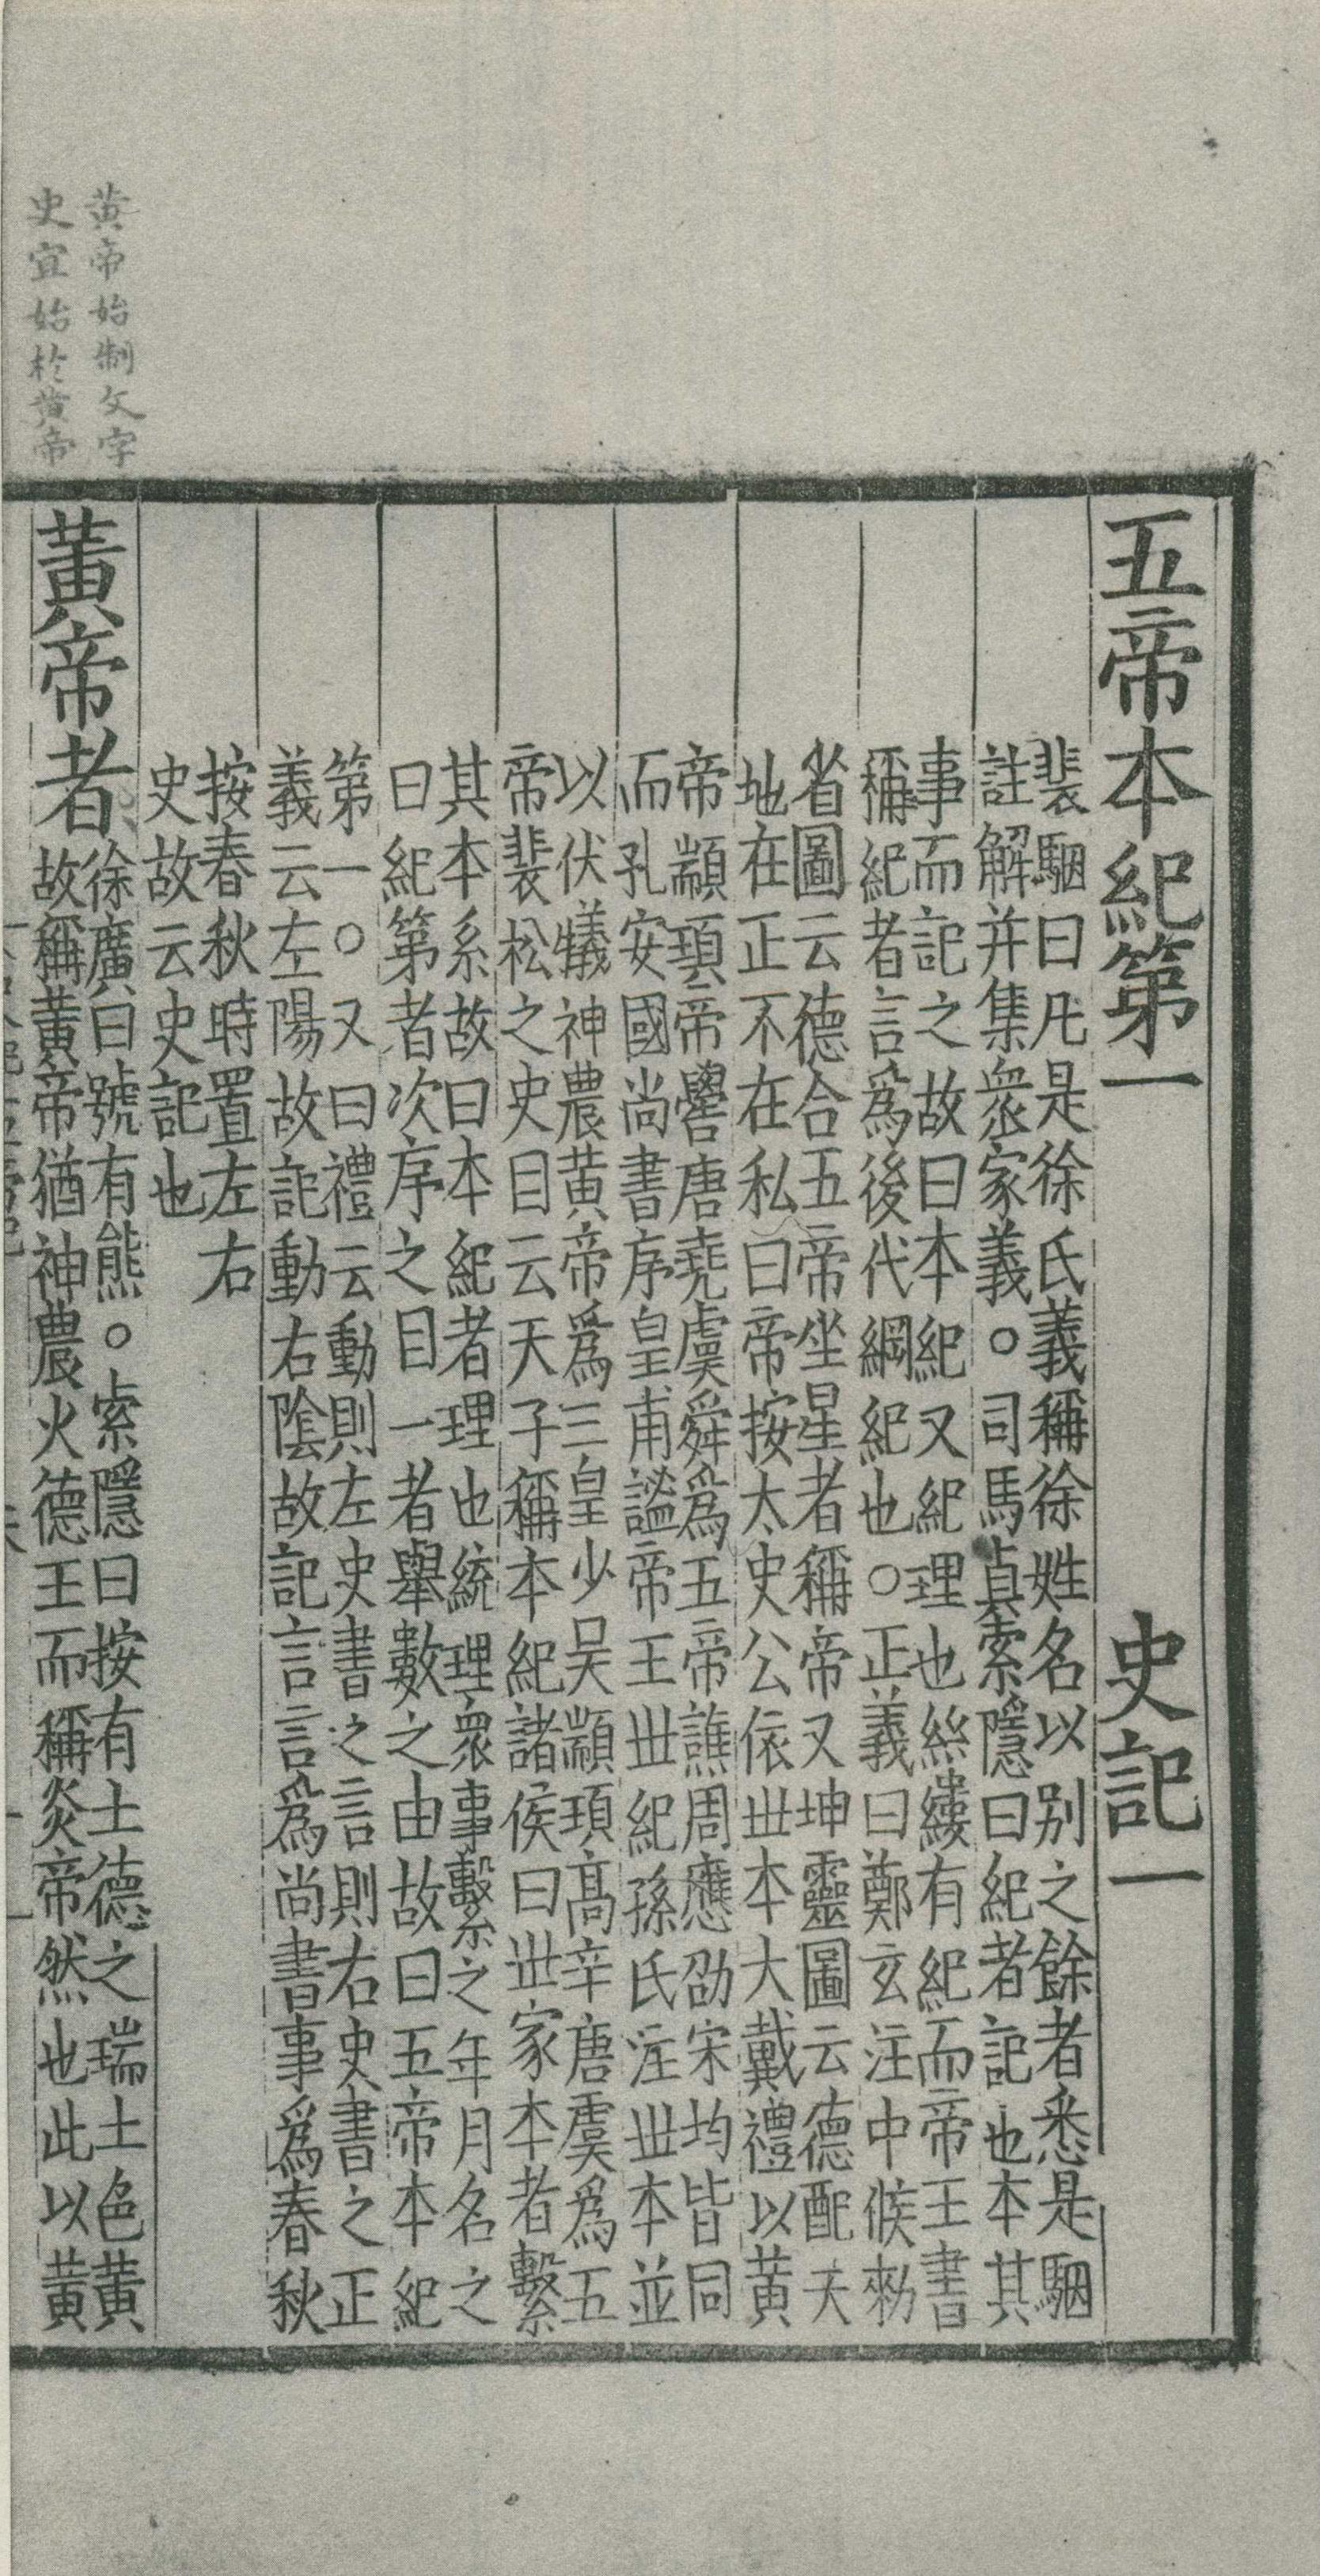 五帝本紀第一　史記一
裴駰曰凡是徐氏義稱徐姓名以别之餘者悉是駰
註解并集衆家義○司馬貞索隱曰紀者記也本其
事而記之故曰本紀又紀理也絲縷有紀而帝王書
稱紀者言爲後代綱紀也○正義曰鄭玄注中候勑
省圖云德合五帝坐星者稱帝又坤靈圖云德配天
地在正不在私曰帝按太史公依世本大戴禮以黄
帝顓頊帝嚳唐堯虞舜爲五帝譙周應劭宋均皆同
而孔安國尚書序皇甫謐帝王世紀孫氏注世本並
以伏犧神農黄帝爲三皇少吴顓頊高辛唐虞爲五
帝裴松之史目云天子稱本紀諸侯曰世家本者繫
其本系故曰本紀者理也統理衆事繫之年月名之
曰紀第者次序之目一者舉數之由故曰五帝本紀
第一○又曰禮云動則左史書之言則右史書之正
義云左陽故記動右陰故記言言爲尚書事爲春秋
按春秋時置左右
史故云史記也
黄帝者
徐廣曰號有熊○索隱曰按有土德之瑞土色黄
故稱黄帝猶神農火德王而稱炎帝然也此以黄
黄帝始制文字
史宜始於黄帝